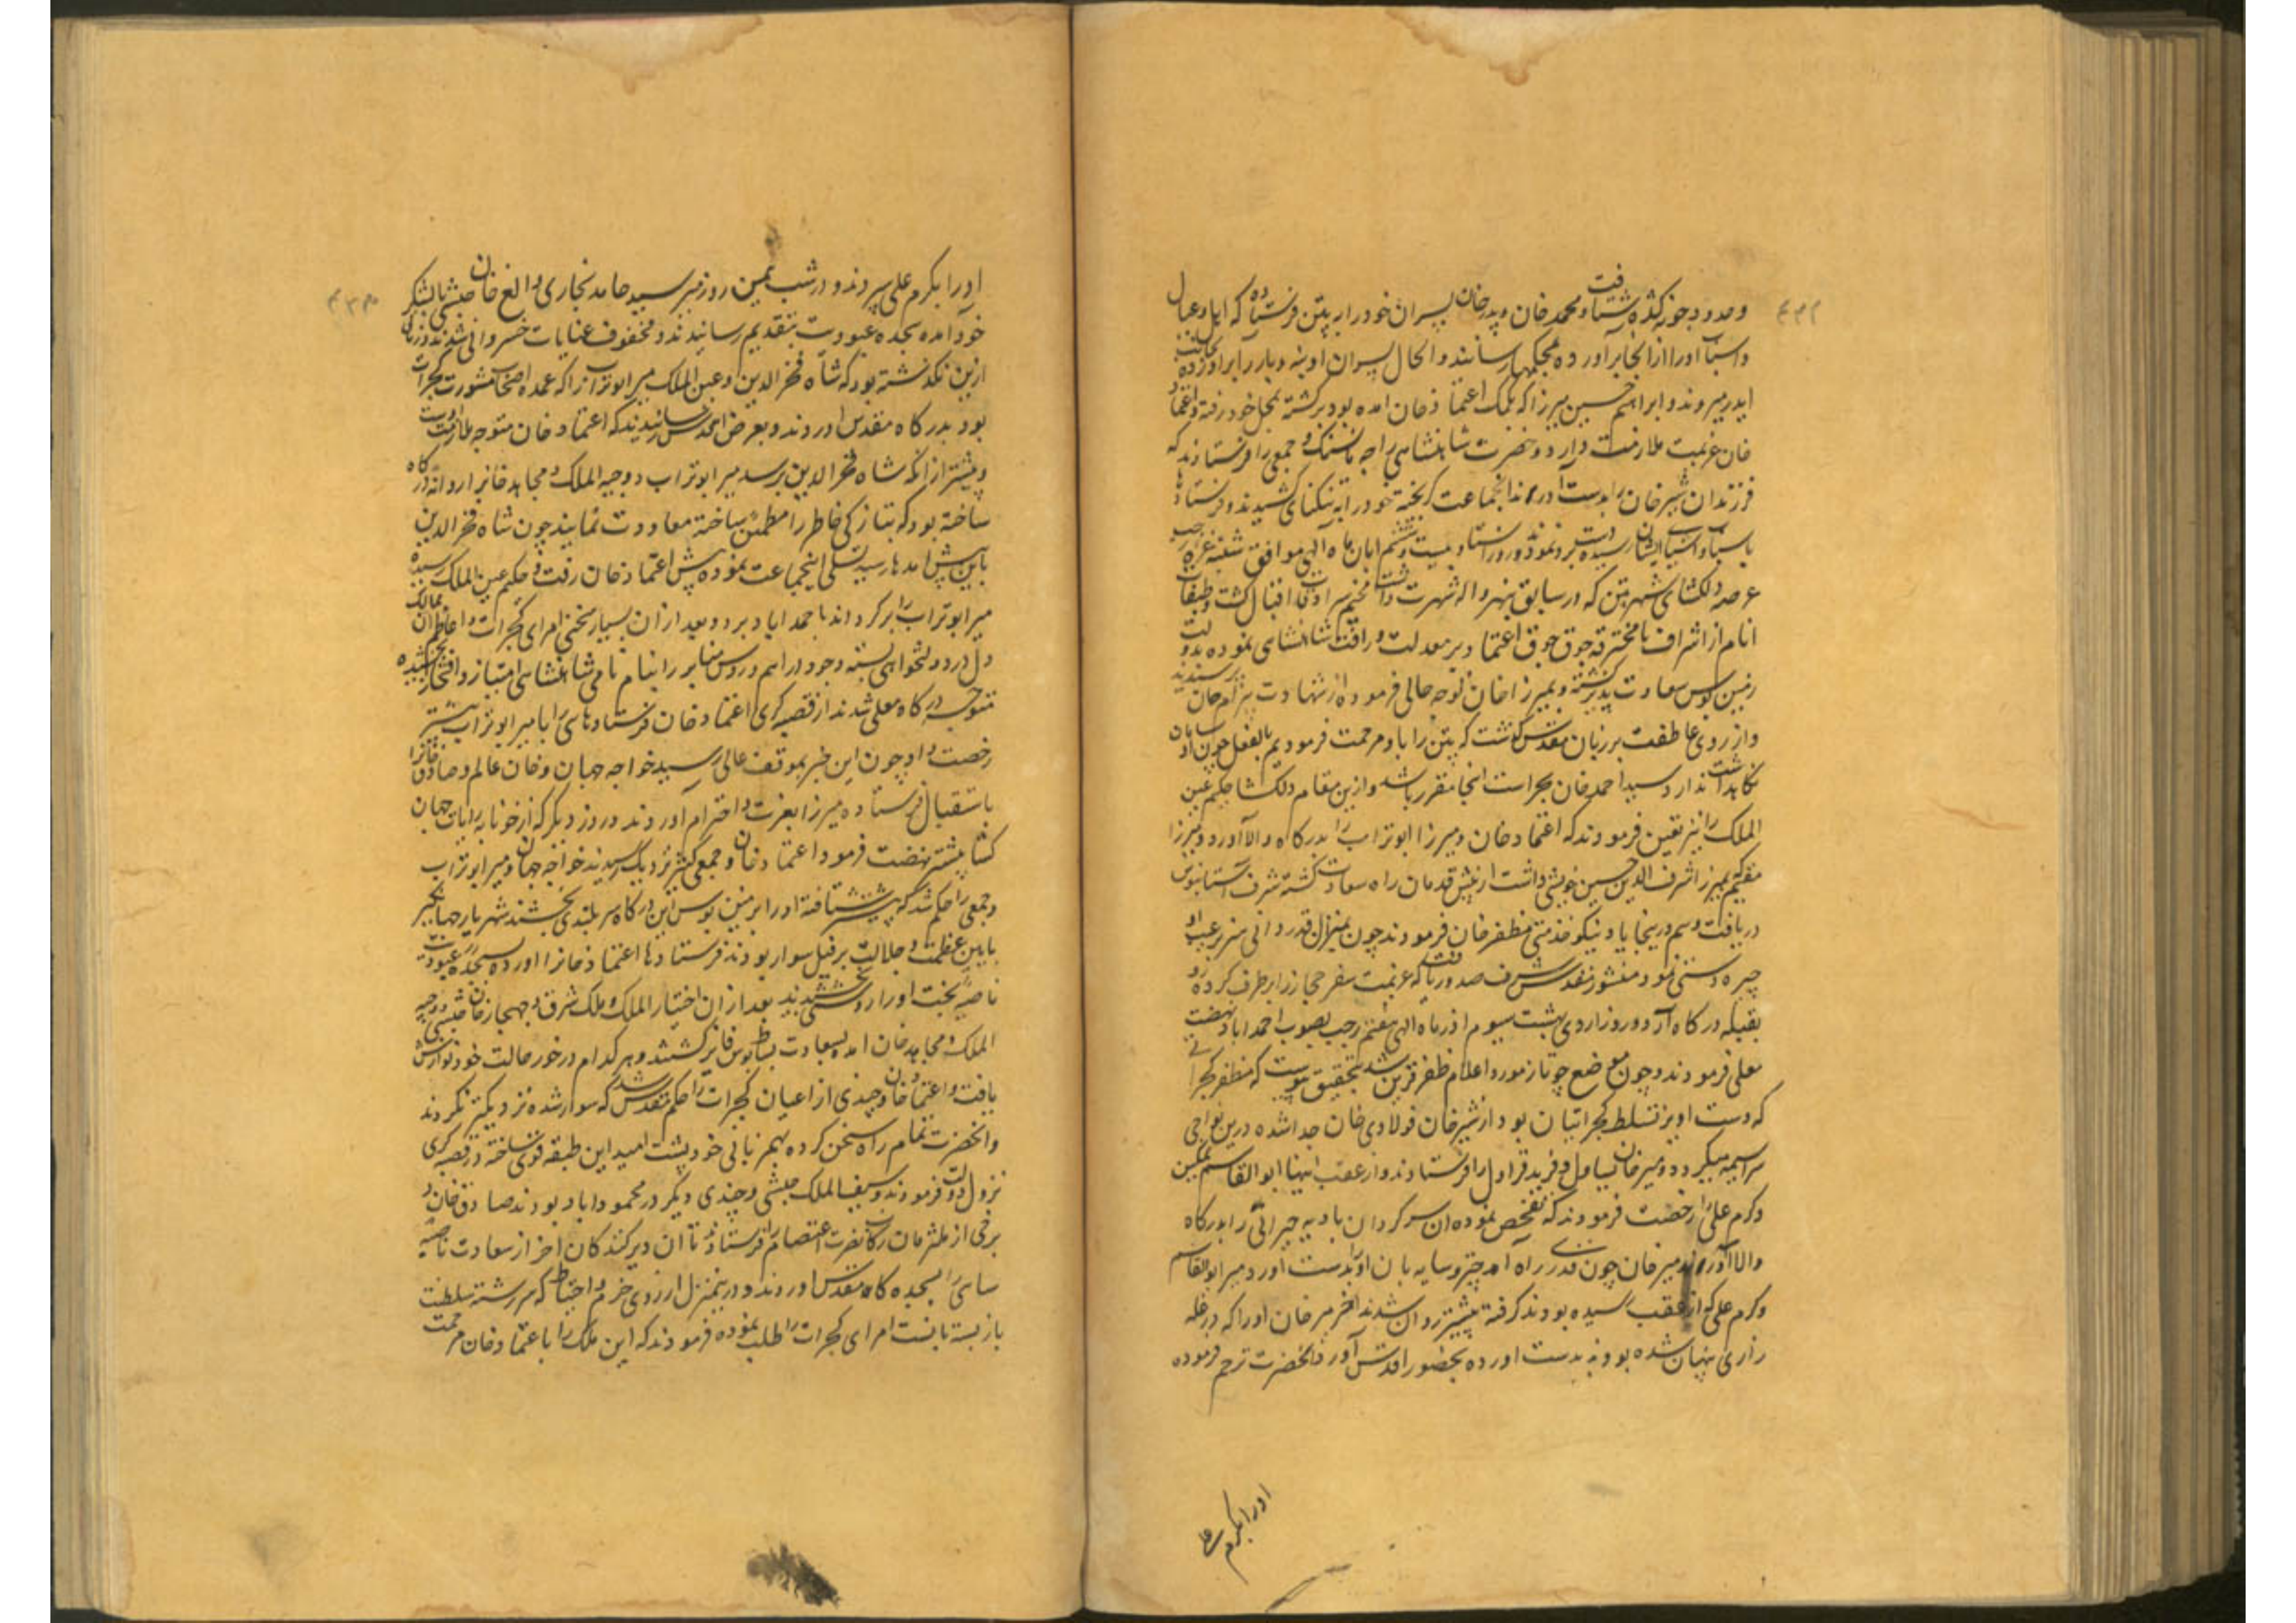 و حدود جونه کده شتافت و محمد خان و بدر خان پسران خود را به پتن فرستاده که اهل و عیال
و اسباب او را از انجا برآورده بمحکمها رسانند و الحال پسران او بنه و بار را برآورده بجانب
ایدر میروند و ابراهیم حسین میرزا که بکمک اعتماد خان امده بود برگشته بمحل خود رفته و اعتماد
خان عزیمت ملازمت دارد و حضرت شاهنشاهی راجه مانسنکه و جمعی را فرستادند که
فرزندان شیر خان را بدست آورند انجماعت کریخته خود را به تنکنای کشیدند و فرستادها
باسباب و اشیای ایشان رسیده دست برد نمودند و روز
عرصه دلکشای شهر پتن که در سابق بنهرواله شهرت داشت مخیم سرادقات اقبال کشت و طبقات
انام از اشراف تا محترفه جوق جوق اعتماد بر معدلت و رافت شاهنشاهی نموده بدولت
زمین بوس سعادت پذیر کشته و بمیرزا خان توجه حالی فرموده از شهادت بیرام خان پرسیدند
و از روی عاطفت بر زبان مقدس کذشت که پتن را باو مرحمت فرمودیم بالفعل چون او سامان
نکاهداشت ندارد سید احمد خان بحراست انجا مقرر باشد و ازین مقام دلکشا حکیم عین
الملک را نیز تعین فرمودند که اعتماد خان و میرزا ابوتراب را بدرکاه والا آورد و میرزا
مقیم که بمیرزا شرف الدین حسین خویشی داشت از پیش قدمان راه سعادت کشته شرف آستانبوس
دریافت و هم درینجا بیاد نیکو خدمتی مظفر خان فرمودند چون بمنزل قدردانی هنر بر عیب او
چیره دستی نمود منشور مقدس شرف صدور یافت که عزیمت سفر حجاز را برطرف کرده رو
بقبله درکاه آرد و روز اردی بهشت سیوم اذر ماه الهی هفتم رجب بصوب احمداباد نهضت
معلی فرمودند و چون موضع چوتانه مورد اعلام ظفر قرین شد بتحقیق پیوست که مظفر کجراتی
که دست اویز تسلط کجراتیان بود از شیر خان فولادی خان جدا شده درین نواحی
سراسیمه میکردد و میر خان یساول و فرید قراول را فرستادند و از عقب اینها ابوالقاسم تمکین
و کرم علی را رخصت فرمودند که تفحص نموده ان سرکردان بادیه حیرانی را بدرکاه
والا آورند میر خان چون قدری راه آمد چتر و سایه بان او را بدست آورد و میر ابوالقاسم
و کرم علی که از عقب رسیده بودند کرفته پیشتر روان شدند اخر میر خان او را که در غله
زاری پنهان شده بود به بدست اورده بحضور اقدس آورد و انحضرت ترحم فرموده
او را بکرم علی
او را بکرم علی سپردند و در شب همین روز میر سید حامد بخاری و الغ خان حبشی بالشکر
خود آمده سجده عبودیت بتقدیم رسانیدند و محفوف عنایات خسروانی شدند و زمانی
ازین نکذشته بود که شاه فخر الدین و عین الملک میر ابوتراب را که عمده اصحاب مشورت کجرات
بود بدرکاه مقدس اوردند و بعرض اقدس رسانیدند که اعتماد خان متوجه ملازمت است
و پیشتر از انکه شاه فخر الدین برسد میر ابوتراب و وجیه الملک و مجاهد خان را روانه درکاه
ساخته بود که بتازکی خاطر را مطمئن ساخته معاودت نمایند چون شاه فخر الدین
باین پیش امدها رسید تسلی اینجماعت نموده پیش اعتماد خان رفت و حکیم عین الملک رسیده
میر ابوتراب را برکرداند باحمداباد برد و بعد از ان بسیار سخن امرای کجرات و اعاظم ان ممالک
دل در دولتخواهی بسته وجوه دراهم و روس منابر را بنام نامی شاهنشاهی امتیاز و افتخار بخشیده
متوجه درکاه معلی شدند از قصبه کری اعتماد خان فرستادهای را با میر ابوتراب پیشتر
رخصت داد چون این خبر بموقف عالی رسید خواجه جهان و خان عالم و صادق خان را
باستقبال فرستاده میرزا بعزت و احترام آوردند و روز دیکر که از جوتانه رایات جهان
کشا پیشتر نهضت فرمود اعتماد خان و جمعی کثیر نزدیک رسیدند خواجه جهان و میر ابوتراب
و جمعی را حکم شد که پیشتر شتافته او را بزمین بوس این درکاه سربلندی بخشند شهریار جهانکیر
باین عظمت و جلالت بر فیل سوار بودند فرستادها اعتماد خان را اورده بسجده عبودیت
ناصیه بخت او را روشنی بخشیدند بعد از ان اختیار الملک و ملک شرق و جهجار خان حبشی و وجیه
الملک و مجاهد خان امده بسعادت بساط بوس فایز کشتند و هر کدام در خور حالت خود نوازش
یافت و اعتماد خان و چندی از اعیان کجرات را حکم مقدس شد که سوار شده نزدیکتر کردند
و انحضرت تمام راه سخن کرده بهم زبانی خود پشت امید این طبقه قوی ساخته در قصبه کری
نزول دولت فرمودند و سیف الملک حبشی و چندی دیکر در محموداباد بودند صادق خان و
برخی از ملتزمان رکاب نصرت اعتصام را فرستادند تا آن دیرکنندکان احراز سعادت ناصیه
سای را بسجده کاه مقدس اوردند و درینمنزل از روی حزم و احتیاط که سررشته سلطنت
باز بسته بانست امرای کجرات را طلب نموده فرمودند که این ملک را باعتماد خان مرحمت